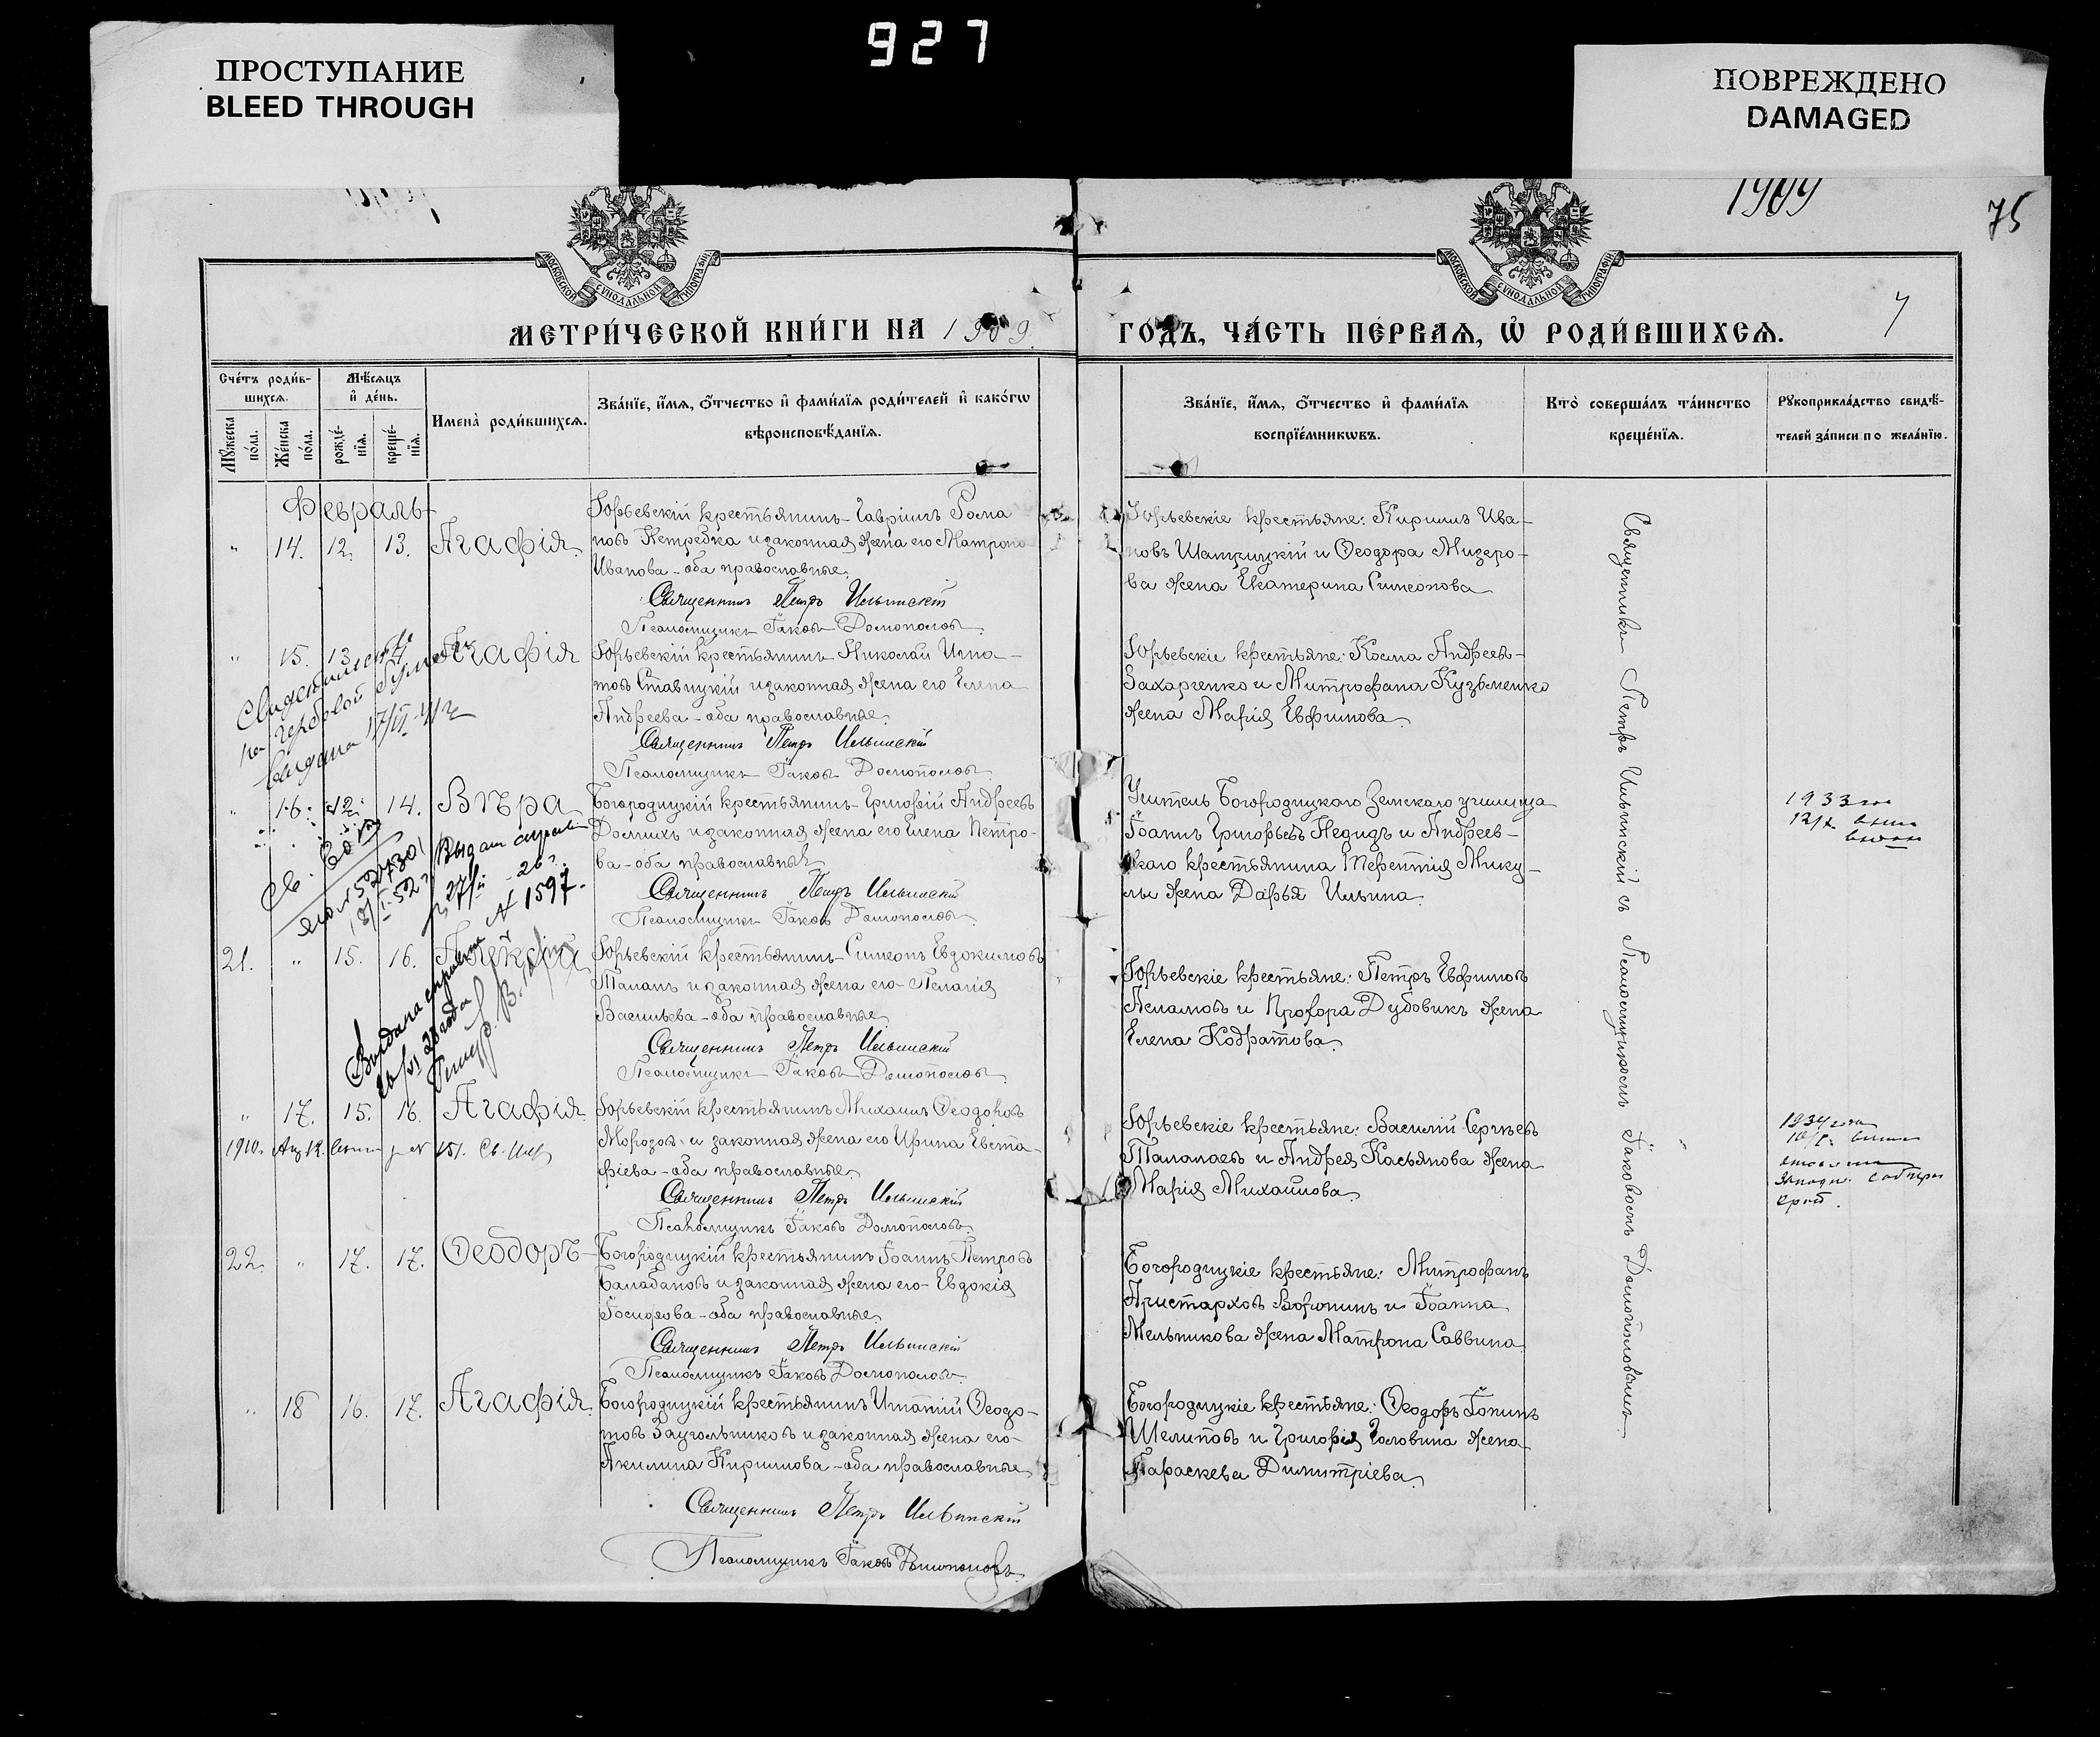 927
ПРОСТУПАНИЕ
BLEED THROUGH
ПОВРЕЖДЕНО
DAMAGED
1909
75
7
МОСКОВСКОЙ СѴНОДАЛЬНОЙ ТИПОГРАФІИ
МОСКОВСКОЙ СѴНОДАЛЬНОЙ ТИПОГРАФІИ
МЕТРИ́ЧЕСКОЙ КНИ́ГИ НА 1909.
ГОДЪ, ЧА́СТЬ ПЕ́РВАѦ, Ѡ҆ РОДИ́ВШИХСѦ.
Сче́тъ роди́в-
шихсѧ.
Мꙋ́жеска по́ла.
Же́нска по́ла.
Мѣ́сѧцъ
и҆ де́нь.
рожде́-
нїѧ.
креще́-
нїѧ.
Имена̀ роди́вшихсѧ.
Зва́нїе, и҆́мѧ, ѻ҆́тчество и҆ фами́лїѧ роди́телей и҆ како́гѡ
вѣроисповѣ́данїѧ.
Зва́нїе, и҆́мѧ, ѻ҆́тчество и҆ фами́лїѧ
воспрїе́мникѡвъ.
Кто̀ соверша́лъ та́инство
креще́нїѧ.
Рꙋкоприкла́дство свидѣ́-
телей за́писи по жела́нїю.
Февраль
" 14. 12. 13. Агафія
Юрьевскій крестьянинъ Гавріилъ Рома
новъ Петребка и законная жена его Матрона
Иванова - оба православные.
Священникъ Петръ Ильинскій
Псаломщикъ Іаковъ Домополовъ
Юрьевскіе крестьяне: Кириллъ Ива-
новъ и Ѳеодора Мизеро-
ва жена Екатерина Симеонова
" 15. 13. Агафія
Юрьевскій крестьянинъ Николай Игна-
товъ Ставицкій и законная жена его Елена
Андреева - оба православные.
Священникъ Петръ Ильинскій
Псаломщикъ Іаковъ Домополовъ
Юрьевскіе крестьяне: Косма Андреевъ
Захарченко и Митрофана Кузьменко
жена Марія Евфимова
на гербовой
выдана 17/VI
" 16. 12. 14. Вѣра
Богородицкій крестьянинъ Григорій Андреевъ
Долгихъ и законная жена его Елена Петро-
ва - оба православные
Священникъ Петръ Ильинскій
Псаломщикъ Іаковъ Домополовъ
Учитель Богородицкаго Земскаго училища
Іоаннъ Григорьевъ Недидъ и Андреев-
скаго крестьянина Терентія Мику-
лы жена Дарья Ильина.
1933
12/X
Выдан
27/II 26 г.
№ 1597.
21. " 15. 16. Алексѣй
Юрьевскій крестьянинъ Симеонъ Евдокимовъ
Таланъ и законная жена его Пелагія
Васильева - оба православные
Священникъ Петръ Ильинскій
Псаломщикъ Іаковъ Домополовъ
Юрьевскіе крестьяне: Петръ Евфимовъ
Асламовъ и Прохора Дубовикъ жена
Елена Кодратова
Выдана справка
года
" 17. 15. 16. Агафія
Юрьевскій крестьянинъ Михаилъ Ѳеодоровъ
Морозовъ и законная жена его Ирина Евста-
фіева - оба православные
Священникъ Петръ Ильинскій
Псаломщикъ Іаковъ Домополовъ
Юрьевскіе крестьяне: Василій Сергѣевъ
Талалаевъ и Андрея Касьянова жена
Марія Михайлова
1910. Авг 12. № 151.
1934
22. " 17. 17. Ѳеодоръ
Богородицкій крестьянинъ Іоаннъ Петровъ
Балабановъ и законная жена его Евдокія
Іосифова - оба православные
Священникъ Петръ Ильинскій
Псаломщикъ Іаковъ Домополовъ
Богородицкіе крестьяне: Митрофанъ
Аристарховъ Воронинъ и Іоанна
Мельникова жена Матрона Саввина
" 18 16. 17. Агафія
Богородицкій крестьянинъ Игнатій Ѳеодо-
товъ Заугольниковъ и законная жена его
Акилина Кириллова - оба православные
Священникъ Петръ Ильинскій
Псаломщикъ Іаковъ Домополовъ
Богородицкіе крестьяне: Ѳеодоръ Іонинъ
Шелиповъ и Григорія Головина жена
Параскева Димитріева
Священникъ Петръ Ильинскій съ Псаломщикомъ Іаковомъ Домополовымъ